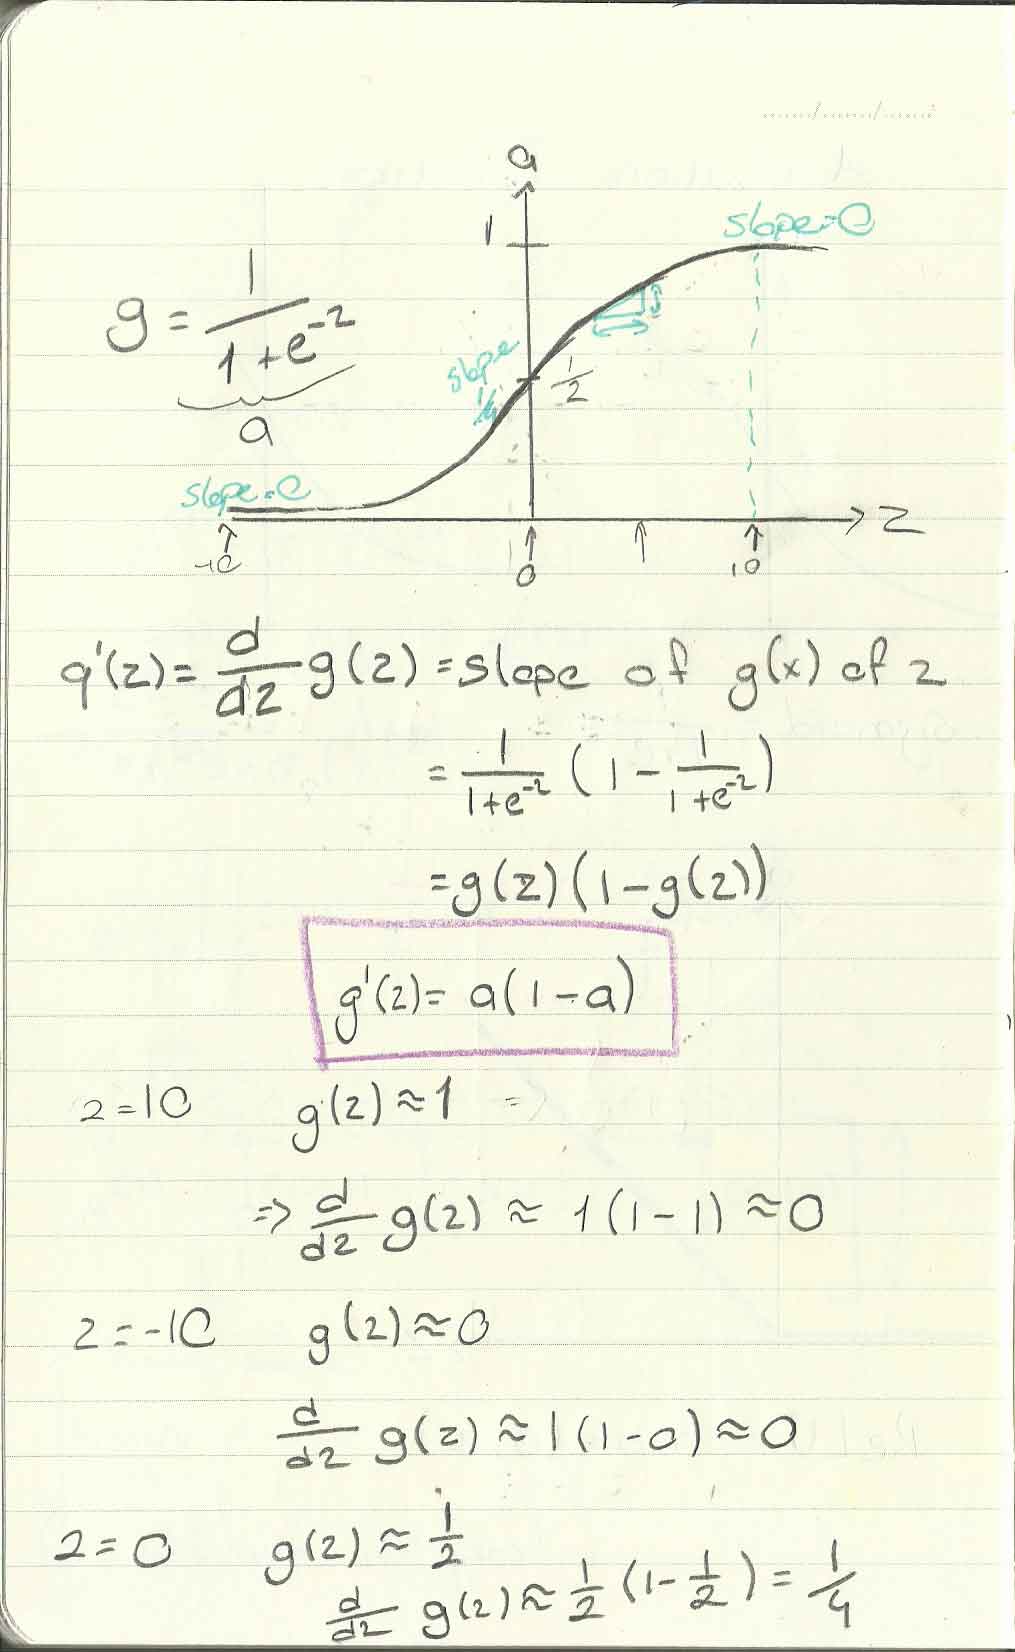 a
1
slope=0
g = 1/(1+e^-z)
a
slope 1/4
1/2
slope=0
z
-10
0
10
g'(z) = d/dz g(z) = slope of g(x) at z
= 1/(1+e^-z) (1 - 1/(1+e^-z))
= g(z) (1-g(z))
g'(z) = a(1-a)
z=10 g(z) ≈ 1
=> d/dz g(z) ≈ 1(1-1) ≈ 0
z=-10 g(z) ≈ 0
d/dz g(z) ≈ 1(1-0) ≈ 0
z=0 g(z) ≈ 1/2
d/dz g(z) ≈ 1/2 (1-1/2) = 1/4